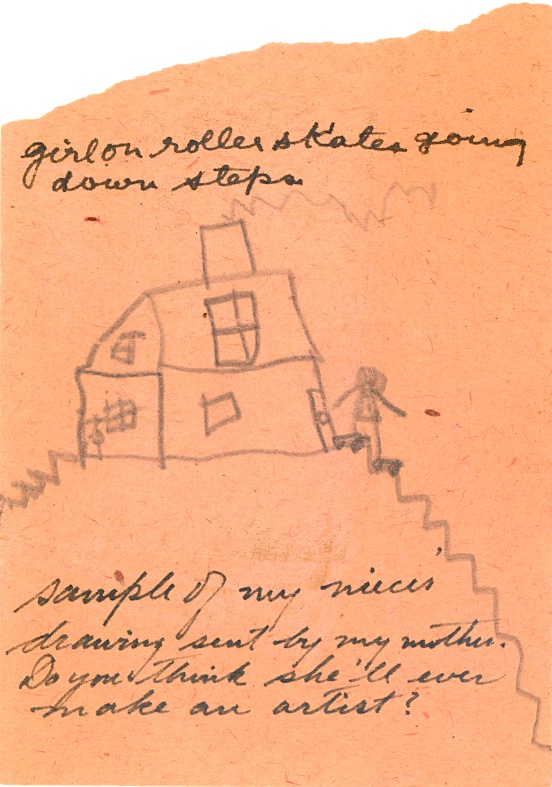 girl on roller skates going
down steps
sample of my nieces'
drawing sent by my mother.
Do you think she'll ever
make an artist?